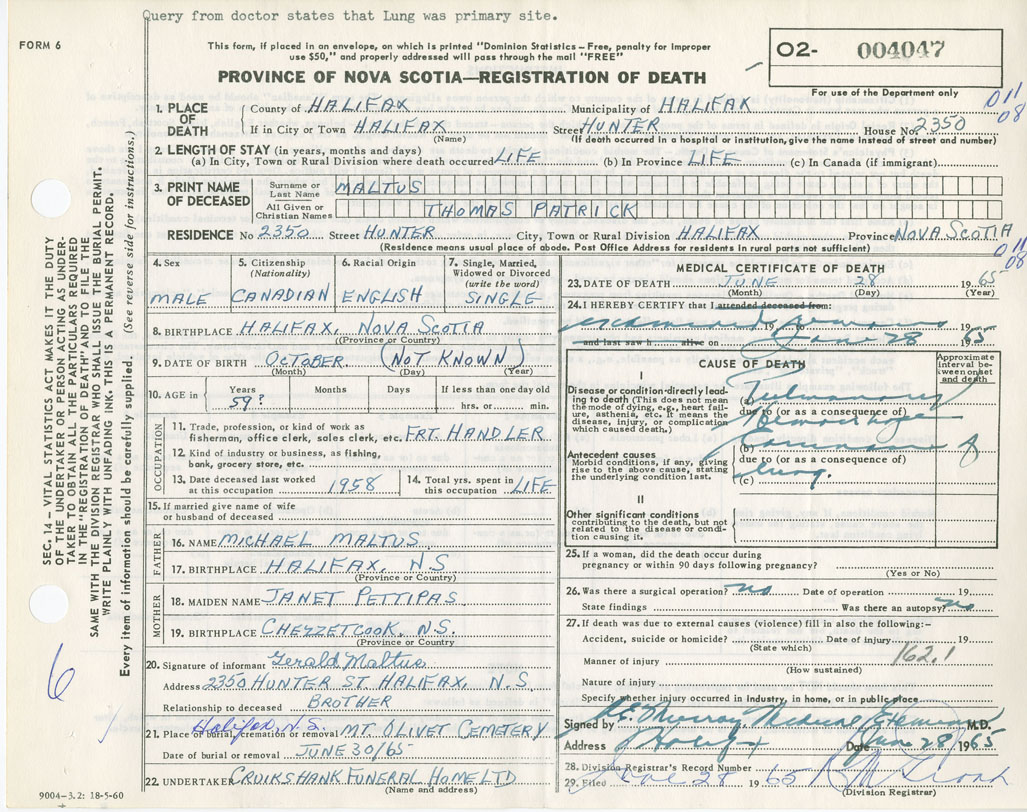 Query from doctor states that Lung was primary site.
FORM 6
This form, if placed in an envelope, on which is printed "Dominion Statistics – Free, penalty for improper
use $50," and properly addressed will pass through the mail "FREE"
PROVINCE OF NOVA SCOTIA—REGISTRATION OF DEATH
O2- 004047
For use of the Department only
011
08
1. PLACE OF DEATH
County of HALIFAX Municipality of HALIFAX
If in City or Town HALIFAX Street HUNTER House No. 2350
(Name) (If death occurred in a hospital or institution, give the name instead of street and number)
2. LENGTH OF STAY (in years, months and days)
(a) In City, Town or Rural Division where death occurred LIFE (b) In Province LIFE (c) In Canada (if immigrant)
3. PRINT NAME OF DECEASED
Surname or Last Name MALTUS
All Given or Christian Names THOMAS PATRICK
RESIDENCE No 2350 Street HUNTER City, Town or Rural Division HALIFAX Province NOVA SCOTIA
(Residence means usual place of abode. Post Office Address for residents in rural parts not sufficient)
011
08
4. Sex
MALE
5. Citizenship (Nationality)
CANADIAN
6. Racial Origin
ENGLISH
7. Single, Married, Widowed or Divorced (write the word)
SINGLE
8. BIRTHPLACE HALIFAX, NOVA SCOTIA
(Province or Country)
9. DATE OF BIRTH OCTOBER (NOT KNOWN)
(Month) (Day) (Year)
10. AGE in Years Months Days If less than one day old
59? hrs. or min.
OCCUPATION
11. Trade, profession, or kind of work as
fisherman, office clerk, sales clerk, etc. FRT HANDLER
12. Kind of industry or business, as fishing,
bank, grocery store, etc.
13. Date deceased last worked
at this occupation 1958
14. Total yrs. spent in
this occupation LIFE
15. If married give name of wife
or husband of deceased
FATHER
16. NAME MICHAEL MALTUS
17. BIRTHPLACE HALIFAX, N S
(Province or Country)
MOTHER
18. MAIDEN NAME JANET PETTIPAS
19. BIRTHPLACE CHEZZETCOOK, N.S.
(Province or Country)
20. Signature of informant Gerald Maltus
Address 2350 HUNTER ST. HALIFAX, N.S
Relationship to deceased BROTHER
Halifax, N.S.
21. Place of burial, cremation or removal MT OLIVET CEMETERY
Date of burial or removal JUNE 30/65
22. UNDERTAKER CRUIKSHANK FUNERAL HOME LTD
(Name and address)
MEDICAL CERTIFICATE OF DEATH
23. DATE OF DEATH JUNE 28 1965
(Month) (Day) (Year)
24. I HEREBY CERTIFY that I attended deceased from:
examined remains 19 19
and last saw h alive on June 28 1965
CAUSE OF DEATH
Approximate interval between onset and death
I
Disease or condition directly leading to death (This does not mean the mode of dying, e.g., heart failure, asthenia, etc. It means the disease, injury, or complication which caused death.)
(a) Pulmonary
due to (or as a consequence of
Hemorrhage
Antecedent causes
Morbid conditions, if any, giving rise to the above cause, stating the underlying condition last.
(b) Carcinoma of
due to (or as a consequence of)
(c) lung.
II
Other significant conditions
contributing to the death, but not related to the disease or condition causing it.
25. If a woman, did the death occur during
pregnancy or within 90 days following pregnancy?
(Yes or No)
26. Was there a surgical operation? no Date of operation 19
State findings Was there an autopsy? no
27. If death was due to external causes (violence) fill in also the following:—
Accident, suicide or homicide? Date of injury 19
(State which)
162.1
Manner of injury
(How sustained)
Nature of injury
Specify whether injury occurred in industry, in home, or in public place
Signed by Murray Medical Examiner M.D.
Address Halifax Date June 28 1965
28. Division Registrar's Record Number
29. Filed June 28 1965
(Division Registrar)
SEC. 14—VITAL STATISTICS ACT MAKES IT THE DUTY
OF THE UNDERTAKER OR PERSON ACTING AS UNDER-
TAKER TO OBTAIN ALL THE PARTICULARS REQUIRED
IN THE "REGISTRATION OF DEATH" AND FILE THE
SAME WITH THE DIVISION REGISTRAR WHO SHALL ISSUE THE BURIAL PERMIT.
WRITE PLAINLY WITH UNFADING INK. THIS IS A PERMANENT RECORD.
Every item of information should be carefully supplied. (See reverse side for instructions.)
6
9004-3.2: 18-5-60